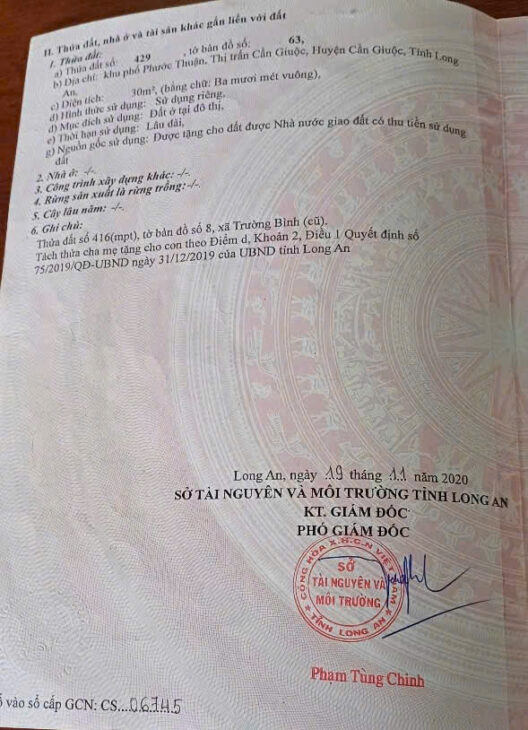 II. Thửa đất, nhà ở và tài sản khác gắn liền với đất
1. Thửa đất:
a) Thửa đất số: 429 , tờ bản đồ số: 63,
b) Địa chỉ: khu phố Phước Thuận, Thị trấn Cần Giuộc, Huyện Cần Giuộc, Tỉnh Long
An.
c) Diện tích: 30m², (bằng chữ: Ba mươi mét vuông),
d) Hình thức sử dụng: Sử dụng riêng,
đ) Mục đích sử dụng: Đất ở tại đô thị,
e) Thời hạn sử dụng: Lâu dài,
g) Nguồn gốc sử dụng: Được tặng cho đất được Nhà nước giao đất có thu tiền sử dụng
đất
2. Nhà ở: -/-.
3. Công trình xây dựng khác: -/-.
4. Rừng sản xuất là rừng trồng:-/-.
5. Cây lâu năm: -/-.
6. Ghi chú:
Thửa đất số 416(mpt), tờ bản đồ số 8, xã Trường Bình (cũ).
Tách thửa cha mẹ tặng cho con theo Điểm d, Khoản 2, Điều 1 Quyết định số
75/2019/QĐ-UBND ngày 31/12/2019 của UBND tỉnh Long An
Long An, ngày 19 tháng 11 năm 2020
SỞ TÀI NGUYÊN VÀ MÔI TRƯỜNG TỈNH LONG AN
KT. GIÁM ĐỐC
PHÓ GIÁM ĐỐC
CỘNG HÒA X.H.C.N VIỆT NAM
SỞ
TÀI NGUYÊN VÀ
MÔI TRƯỜNG
TỈNH LONG AN
Phạm Tùng Chinh
ố vào sổ cấp GCN: CS...06745